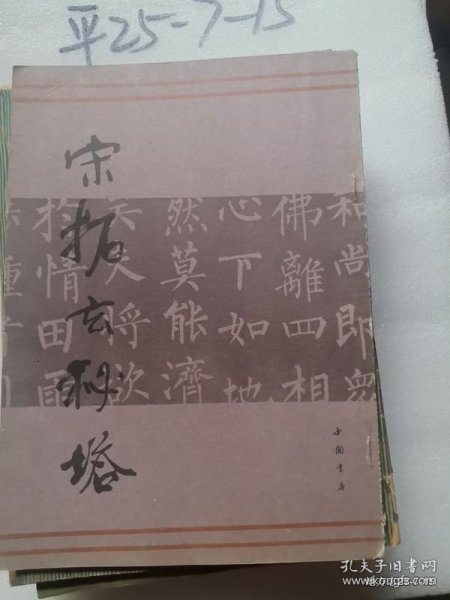 平25-7-15
宋拓玄秘塔
和尚即衆
佛離四相
心下如地
然莫能濟
矣夫將欲
於情田雨
中国书店
孔夫子旧书网